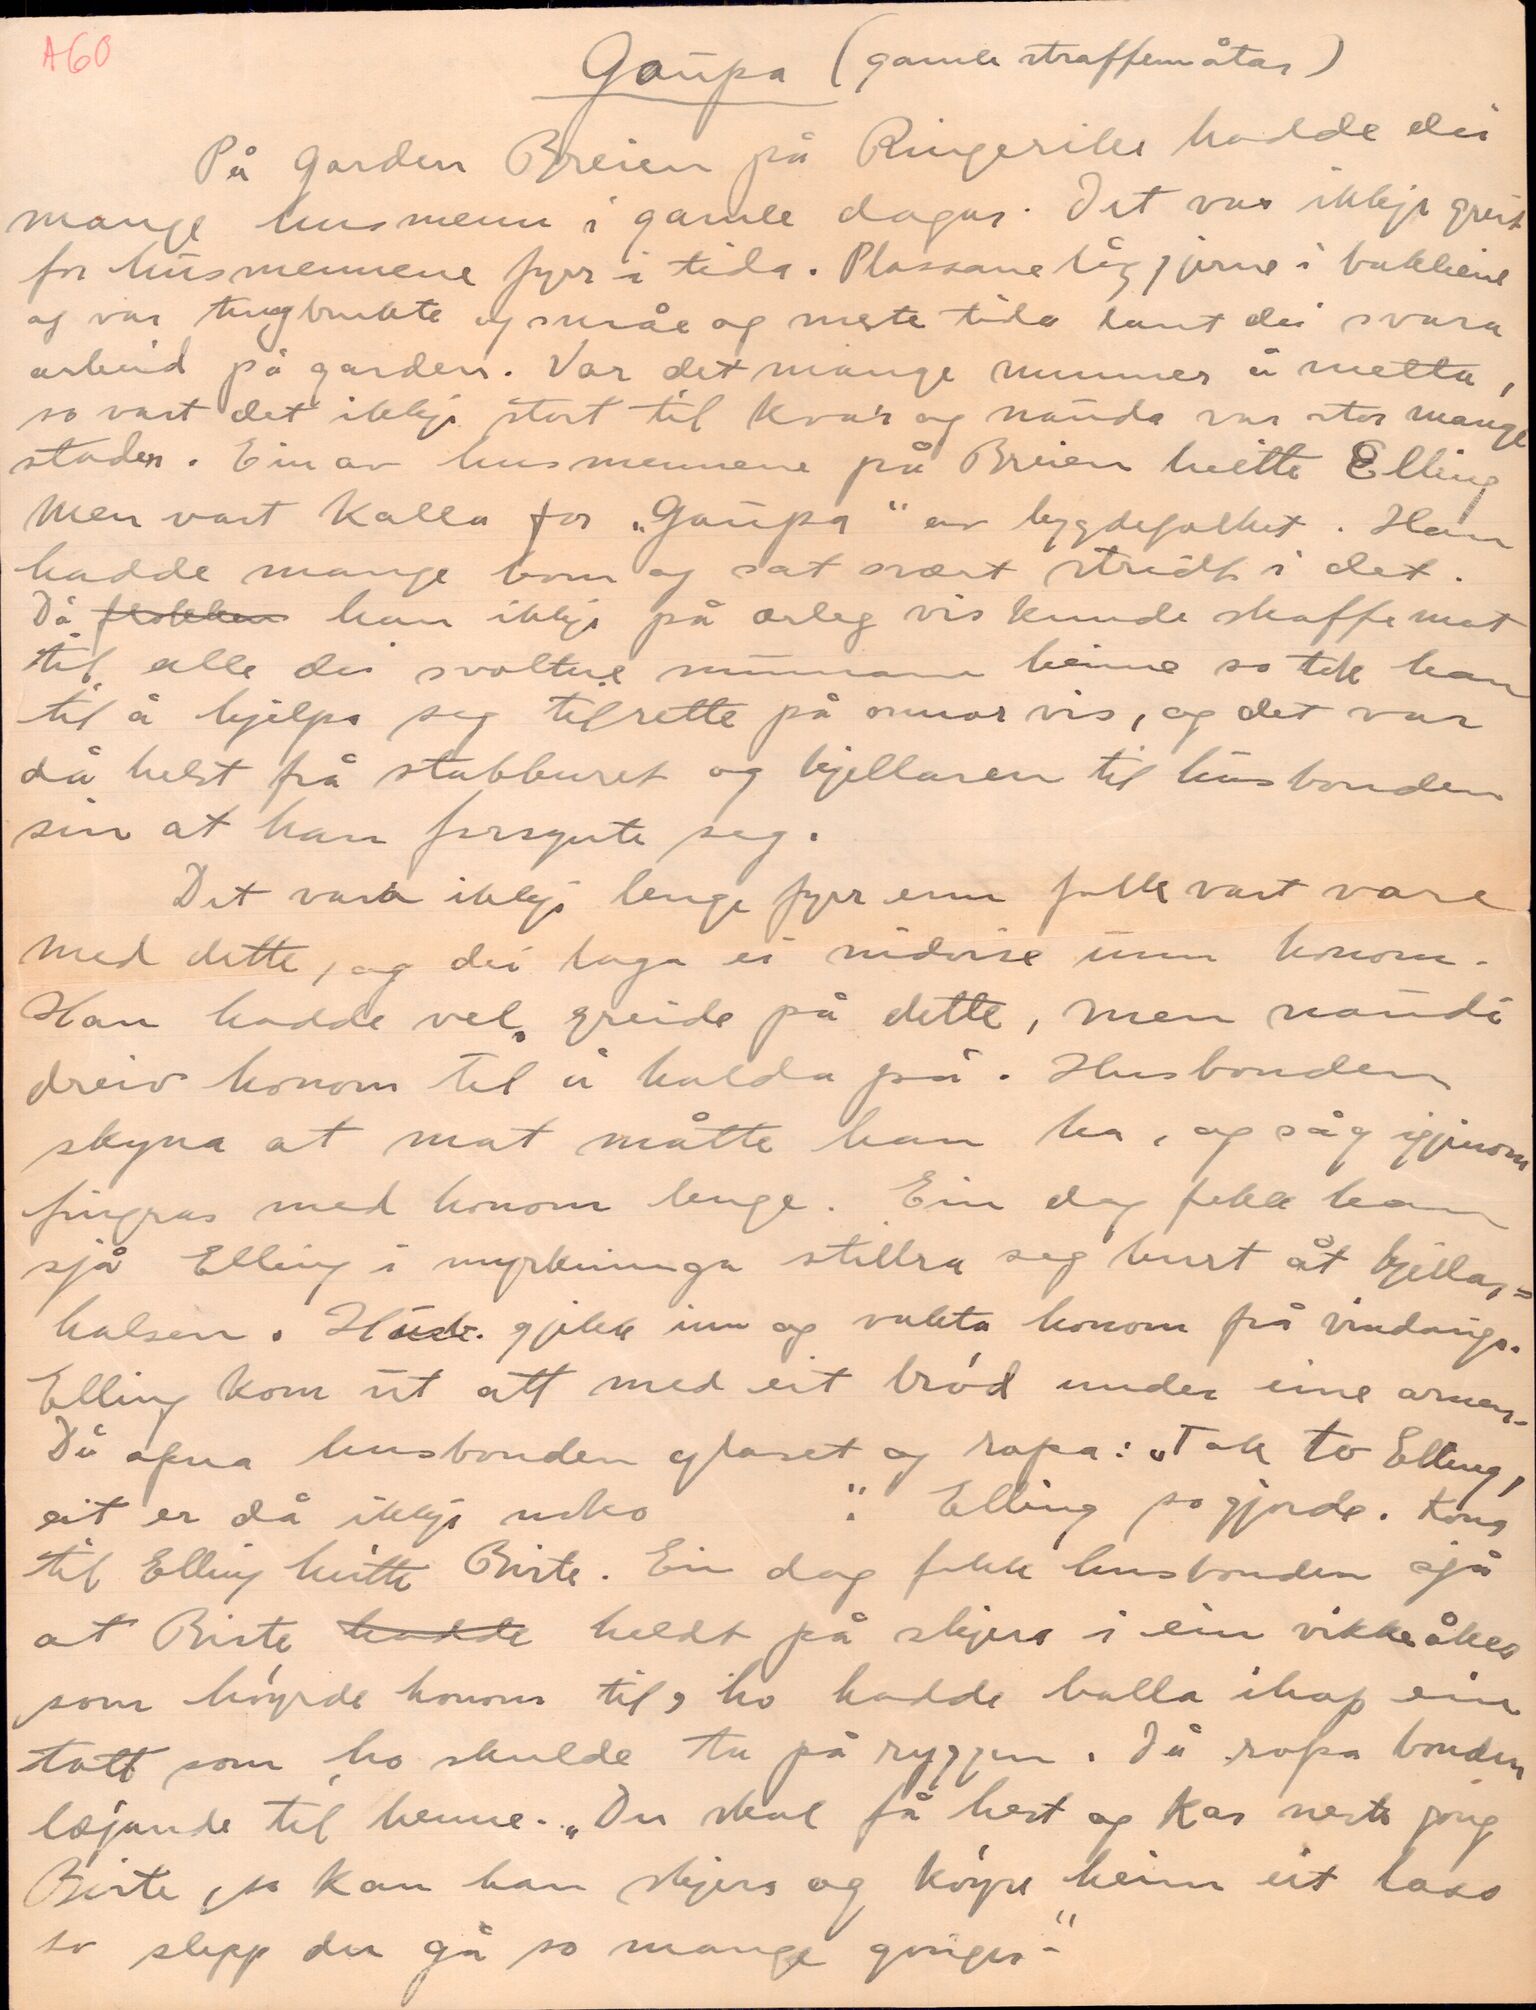 A60
Gaupa (gamle straffemåtar)
På garden Breien på Ringerike hadde dei
mange husmenn i gamle dagar. Det var ikkje greit
for husmennene fyrr i tida. Plassane låg gjerne i bakkene
og var tungbrukte og småe og meste tida laut dei svara
arbeid på garden. Var det mange munnar å metta,
so vart det ikkje stort til kvar og nauda var stor mange
stader. Ein av husmennene på Breien heitte Elling
men vart kalla for „Gaupa" av bygdefolket. Han
hadde mange born og sat svært stridt i det.
Då flokken han ikkje på ærleg vis kunde skaffe mat
til alle dei svoltne munnane heime so tok han
til å hjelpa seg tilrette på annar vis, og det var
då helst frå stabburet og kjellaren til husbonden
sin at han forsynte seg.
Det vart ikkje lenge fyrr enn folk vart vare
med dette, og dei laga ei nidvise um honom.
Han hadde vel greide på dette, men naudi
dreiv honom til å halda på. Husbonden
skyna at mat måtte han ha, og såg igjenom
fingras med honom lenge. Ein dag fekk han
sjå Elling i myrkninga stillra seg burt åt kjellar=
halsen. Husb. gjekk inn og vakta honom frå vindauga.
Elling kom ut att med eit brød under eine armen.
Då opna husbonden glaset og ropa: „Tak to Elling,
eit er då ikkje noko ". Elling so gjorde. Kona
til Elling heitte Birte. Ein dag fekk husbonden sjå
at Birte hadde heldt på skjera i ein vikkeåker
som høyrde honom til, ho hadde balla ihop ein
tott som ho skulde ta på ryggen. Då ropa bonden
læjande til henne. „Du skal få hest og kar neste gong
Birte, so kan han skjera og køyre heim eit lass
so slepp du gå so mange gonger."